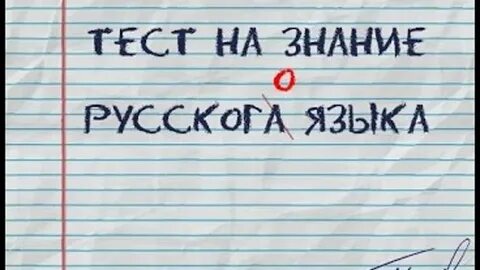 ТЕСТ НА ЗНАНИЕ
О
РУССКОГА ЯЗЫКА